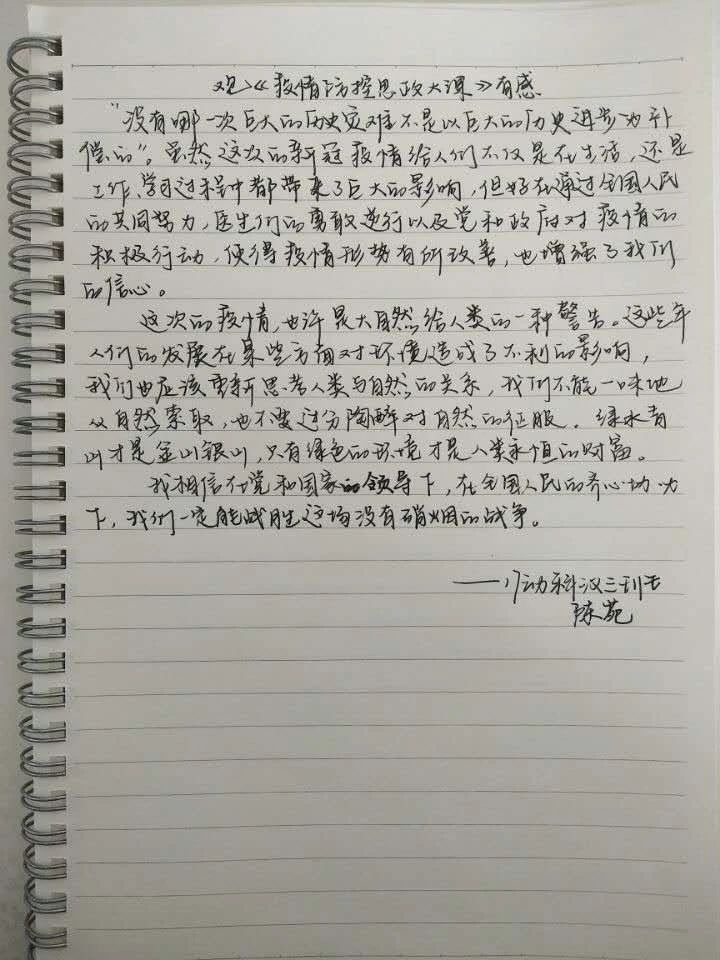 观《疫情防控思政大课》有感
“没有哪一次巨大的历史灾难不是以巨大的历史进步为补
偿的”。虽然这次的新冠疫情给人们不仅是在生活，还是
工作、学习过程中都带来了巨大的影响，但好在通过全国人民
的共同努力，医生们的勇敢逆行以及党和政府对疫情的
积极行动，使得疫情形势有所改善，也增强了我们
的信心。
这次的疫情，也许是大自然给人类的一种警告。这些年
人们的发展在某些方面对环境造成了不利的影响，
我们也应该重新思考人类与自然的关系，我们不能一味地
从自然索取，也不要过分陶醉对自然的征服。绿水青
山才是金山银山，只有绿色的环境才是人类永恒的财富。
我相信在党和国家的领导下，在全国人民的齐心协力
下，我们一定能战胜这场没有硝烟的战争。
——17动科汉三
陈苑